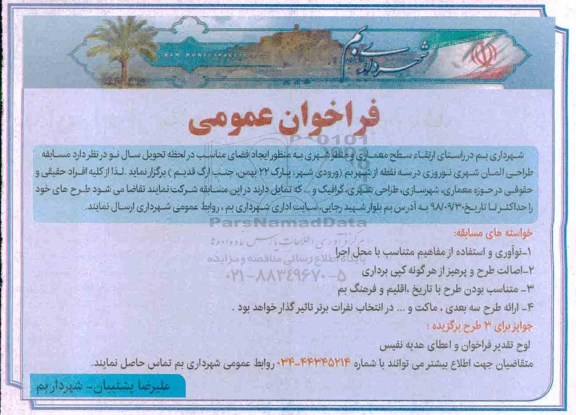 شهرداری بم
فراخوان عمومی
شهرداری بم در راستای ارتقاء سطح معماری و منظر شهری به منظور ایجاد فضای مناسب در لحظه تحویل سال نو در نظر دارد مسابقه
طراحی المان شهری نوروزی در سه نقطه از شهر بم (ورودی شهر، پارک ۲۲ بهمن، جنب ارگ قدیم) برگزار نماید. لذا از کلیه افراد حقیقی و
حقوقی در حوزه معماری، شهرسازی، طراحی شهری، گرافیک و ... که تمایل دارند در این مسابقه شرکت نمایند تقاضا می شود طرح های خود
را حداکثر تا تاریخ ۹۸/۰۹/۳۰ به آدرس بم بلوار شهید رجایی، سایت اداری شهرداری بم، روابط عمومی شهرداری ارسال نمایند.
ParsNamadData
پایگاه اطلاع رسانی مناقصه و مزایده
۰۲۱-۸۸۳۴۹۶۷۰-۵
خواسته های مسابقه:
۱-نوآوری و استفاده از مفاهیم متناسب با محل اجرا
۲-اصالت طرح و پرهیز از هر گونه کپی برداری
۳- متناسب بودن طرح با تاریخ ،اقلیم و فرهنگ بم
۴- ارائه طرح سه بعدی ، ماکت و ... در انتخاب نفرات برتر تاثیر گذار خواهد بود .
جوایز برای ۳ طرح برگزیده :
لوح تقدیر فراخوان و اعطای هدیه نفیس
متقاضیان جهت اطلاع بیشتر می توانند با شماره ۰۳۴-۴۴۳۴۵۲۱۴ روابط عمومی شهرداری بم تماس حاصل نمایند.
علیرضا پشتیبان- شهردار بم